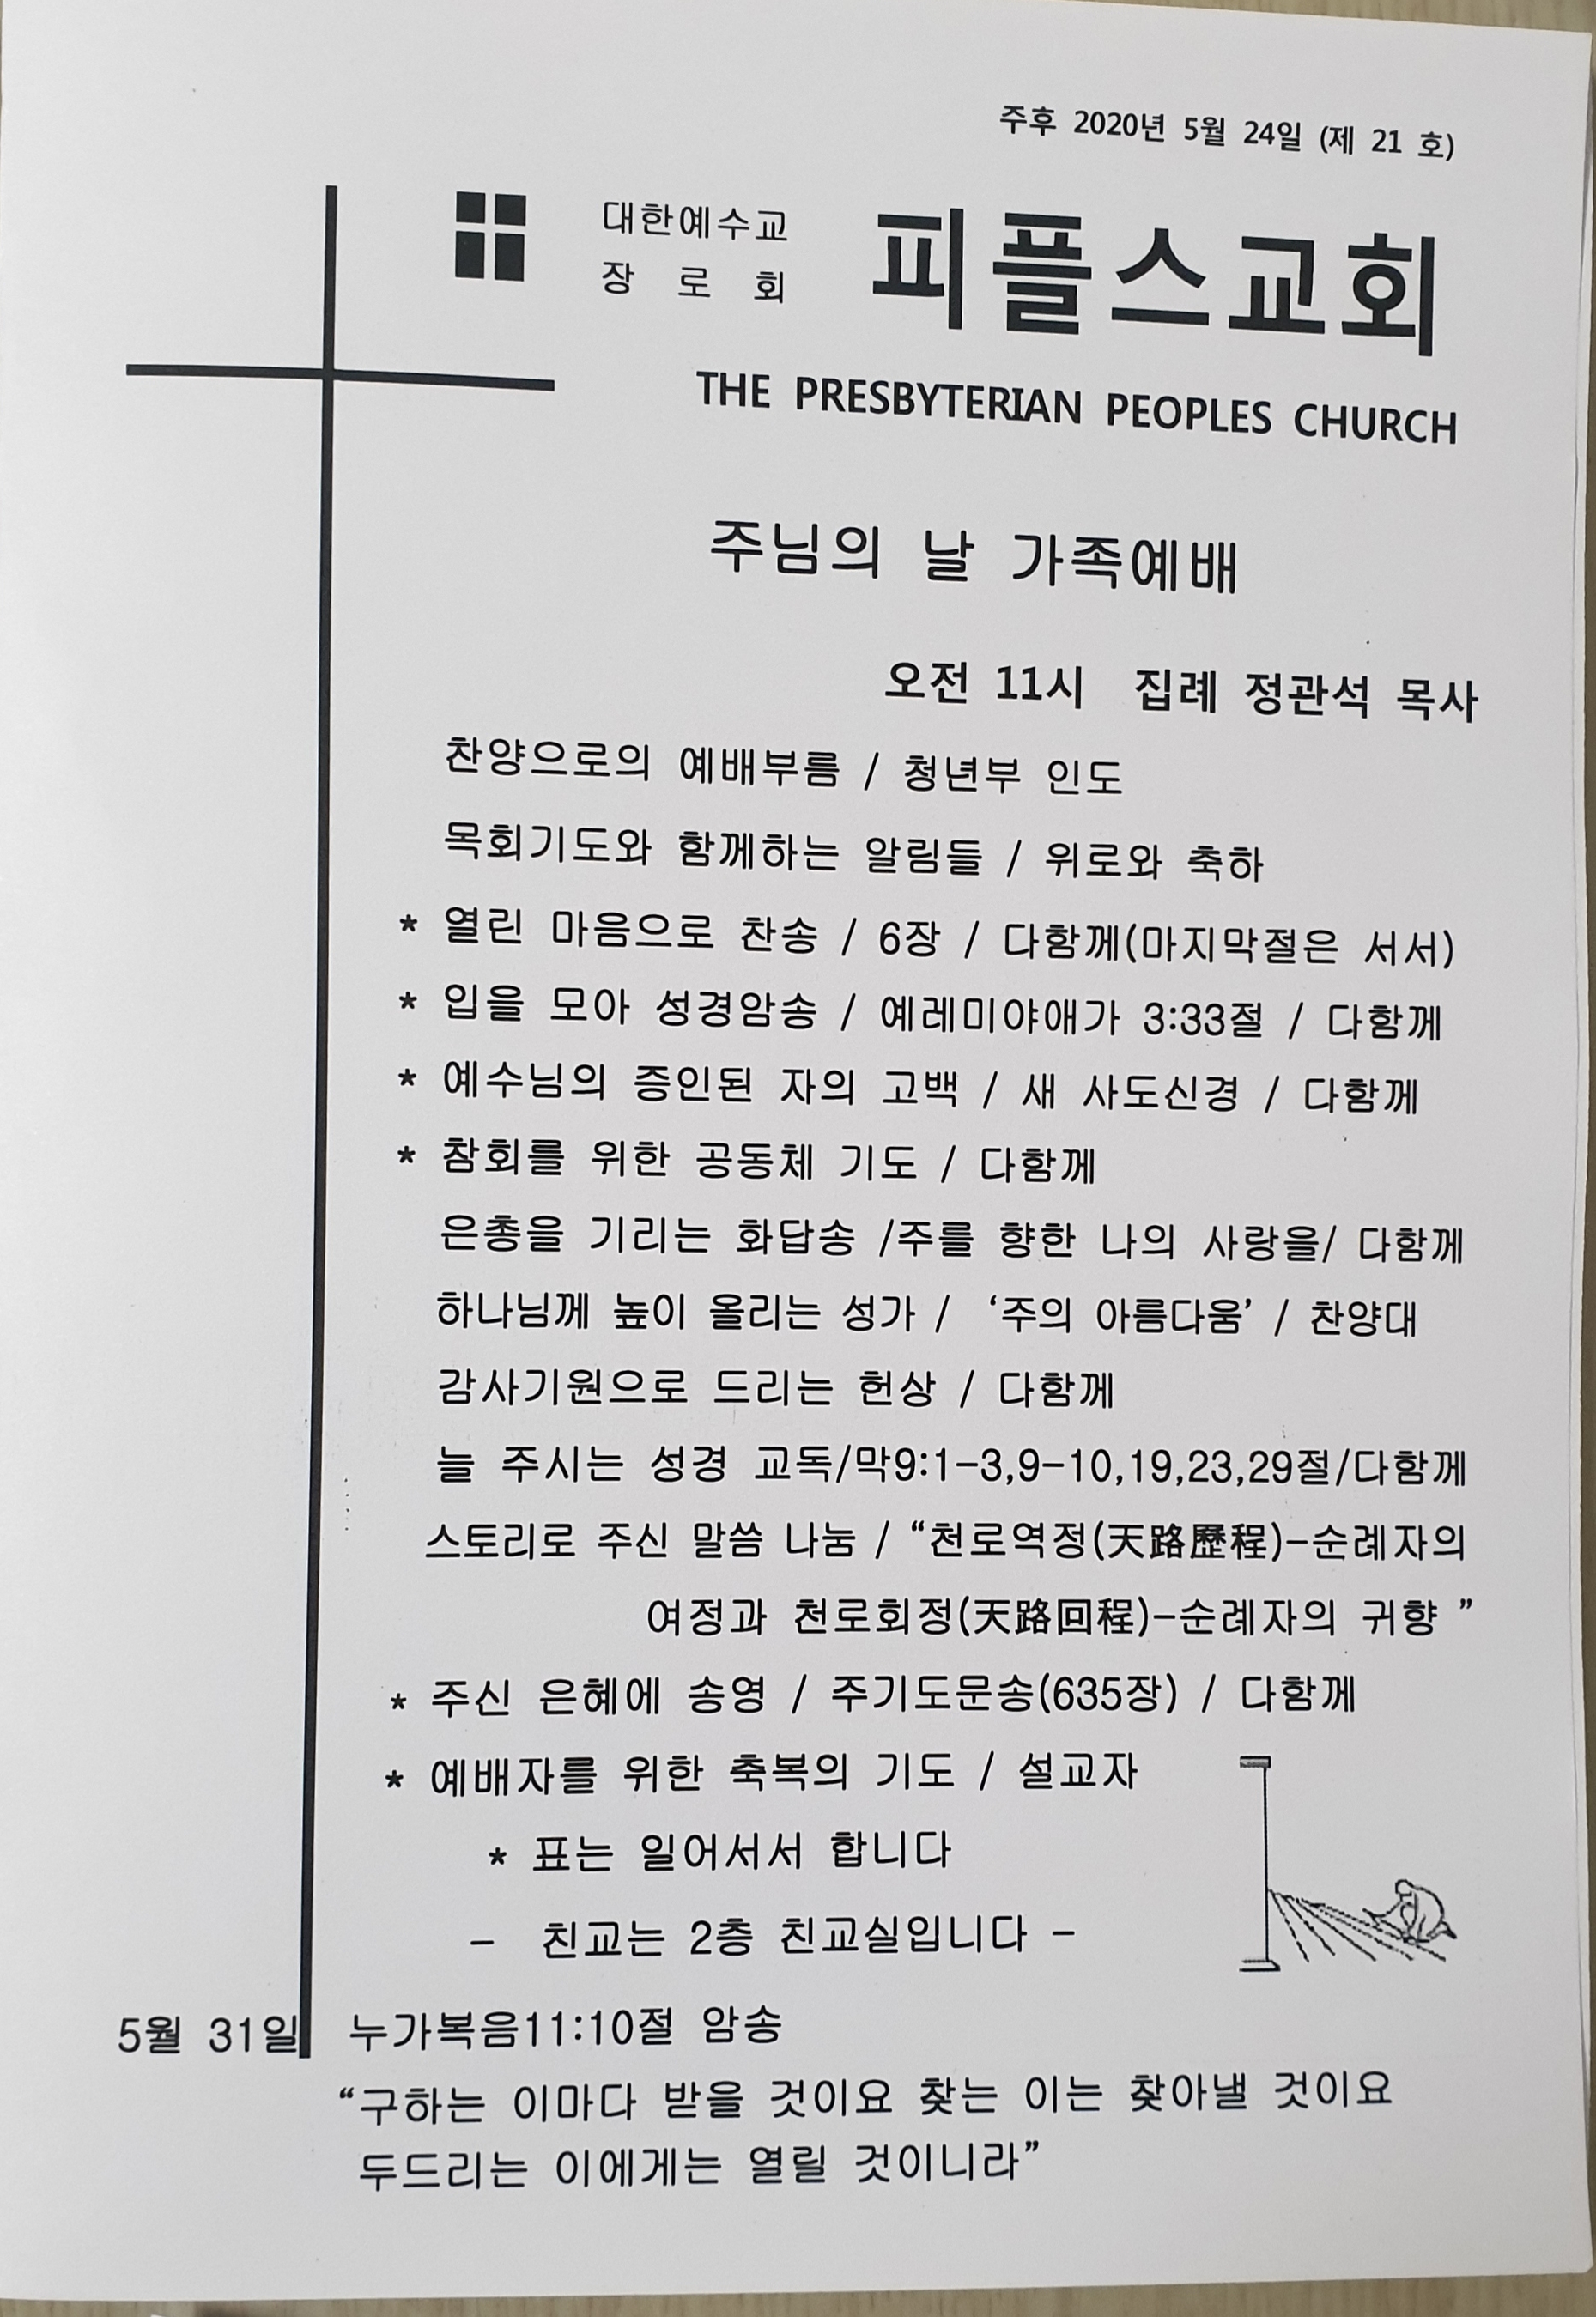 주후 2020년 5월 24일 (제 21 호)
대한예수교
장 로 회
피플스교회
THE PRESBYTERIAN PEOPLES CHURCH
주님의 날 가족예배
오전 11시 집례 정관석 목사
찬양으로의 예배부름 / 청년부 인도
목회기도와 함께하는 알림들 / 위로와 축하
* 열린 마음으로 찬송 / 6장 / 다함께(마지막절은 서서)
* 입을 모아 성경암송 / 예레미야애가 3:33절 / 다함께
* 예수님의 증인된 자의 고백 / 새 사도신경 / 다함께
* 참회를 위한 공동체 기도 / 다함께
은총을 기리는 화답송 /주를 향한 나의 사랑을/ 다함께
하나님께 높이 올리는 성가 / ‘주의 아름다움’ / 찬양대
감사기원으로 드리는 헌상 / 다함께
늘 주시는 성경 교독/막9:1-3,9-10,19,23,29절/다함께
스토리로 주신 말씀 나눔 / “천로역정(天路歷程)-순례자의
여정과 천로회정(天路回程)-순례자의 귀향 ”
* 주신 은혜에 송영 / 주기도문송(635장) / 다함께
* 예배자를 위한 축복의 기도 / 설교자
* 표는 일어서서 합니다
- 친교는 2층 친교실입니다 -
5월 31일 누가복음11:10절 암송
“구하는 이마다 받을 것이요 찾는 이는 찾아낼 것이요
두드리는 이에게는 열릴 것이니라”